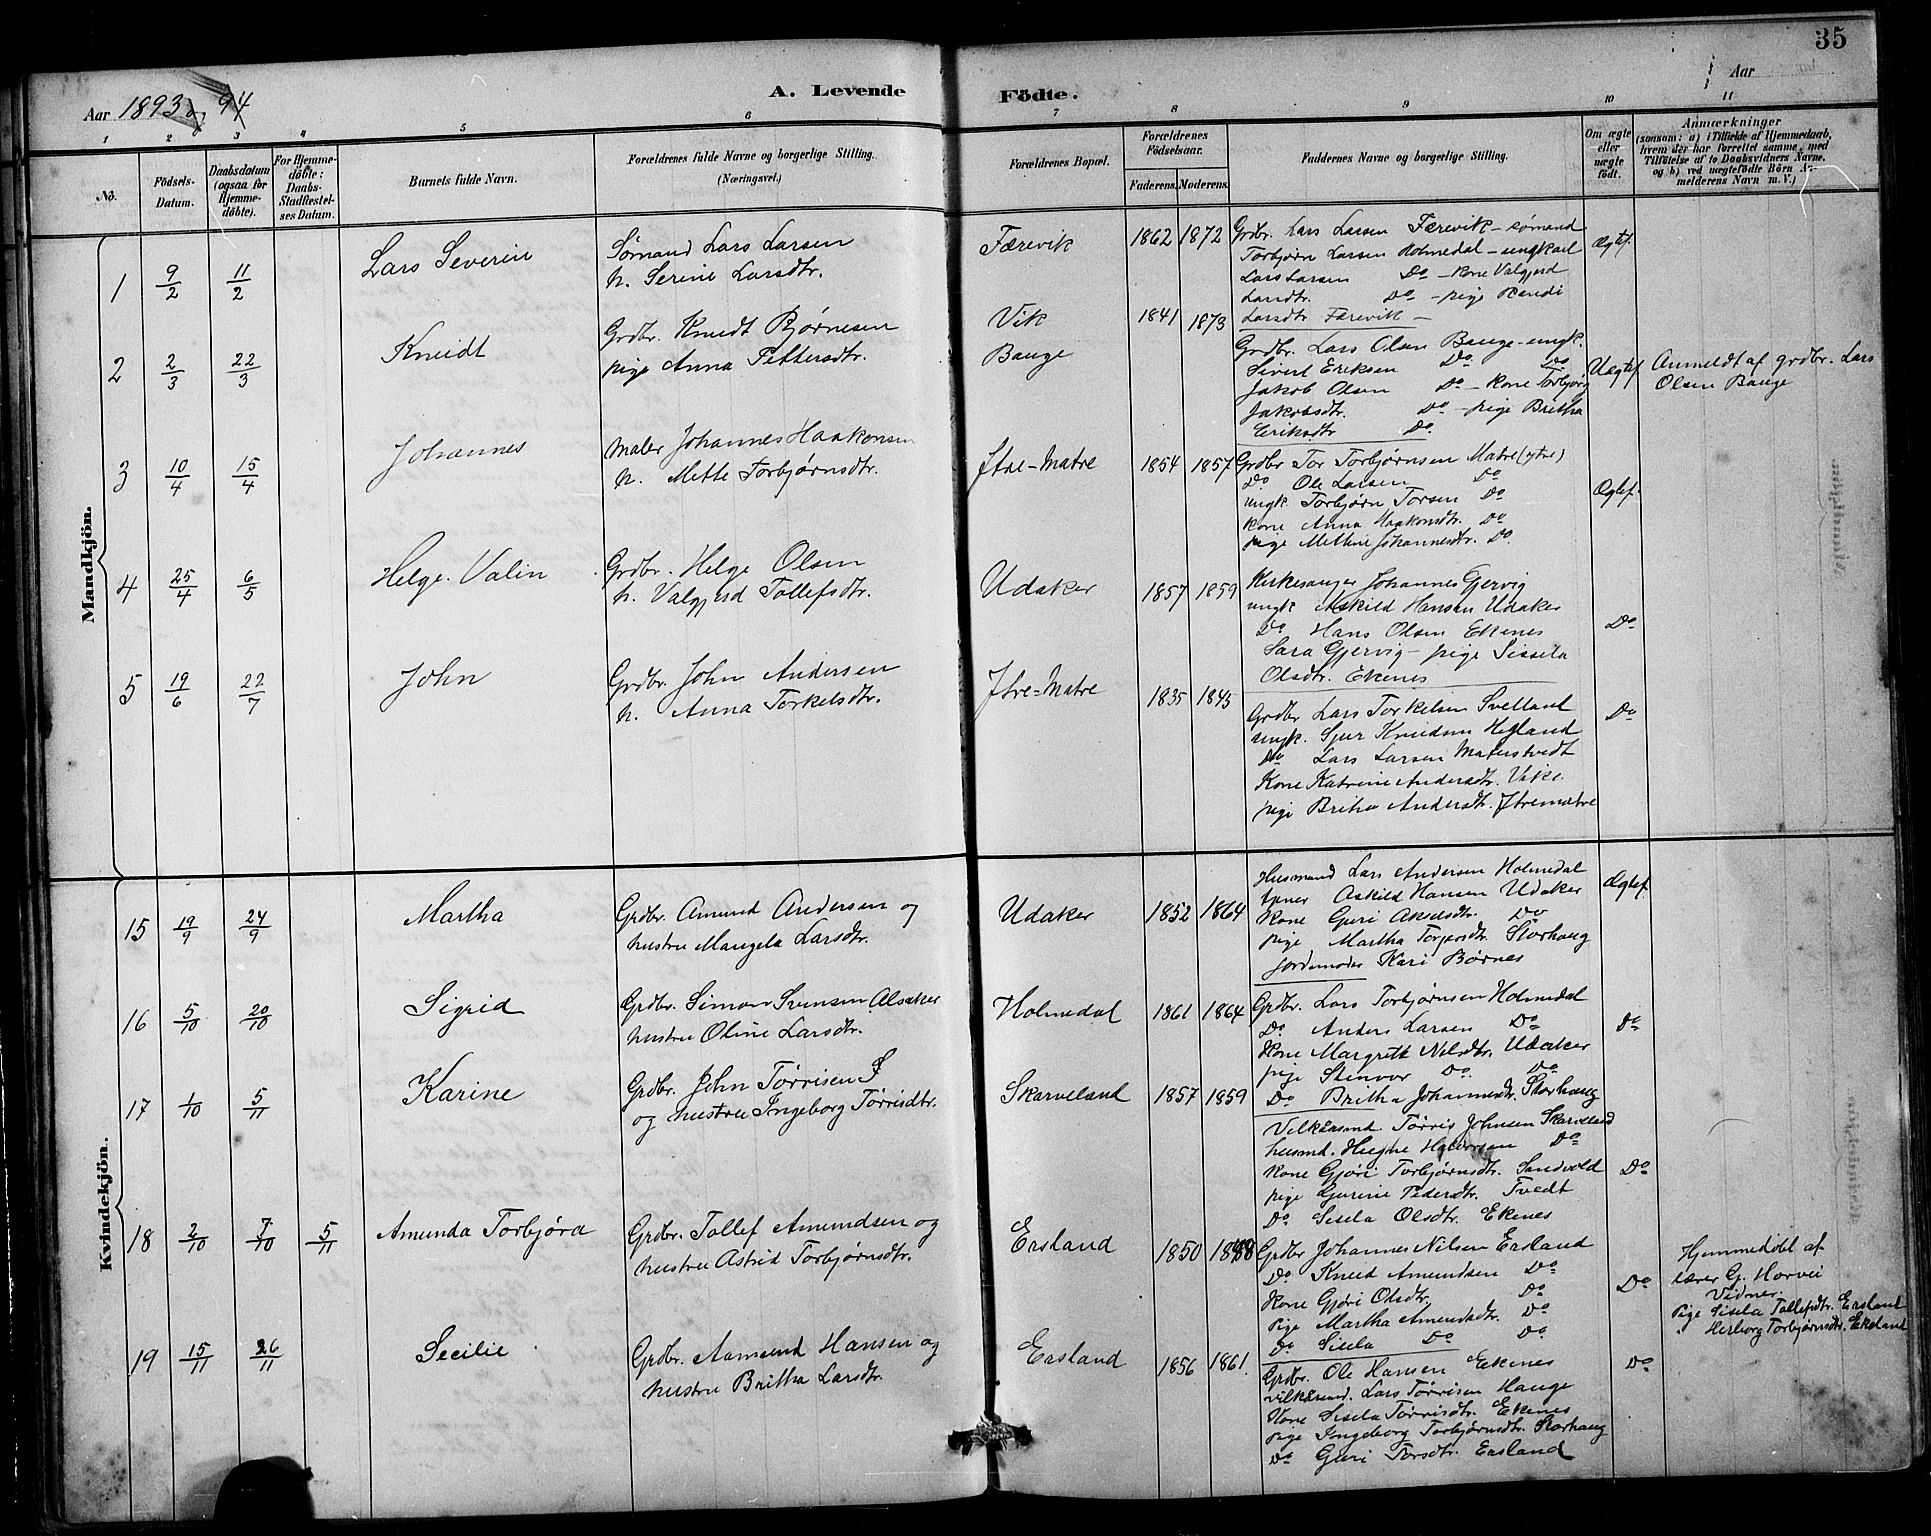 35
Aar 1893 og 94
A. Levende Födte.
Aar
1 2 3 4 5 6 7 8 9 10 11
No.
Födsels-Datum.
Daabsdatum (ogsaa for Hjemmedöbte).
For Hjemmedöbte: Daabs-Stadfæstelses Datum.
Barnets fulde Navn.
Forældrenes fulde Navne og borgerlige Stilling. (Næringsvei.)
Forældrenes Bopæl.
Forældrenes Födselsaar.
Faderens. Moderens.
Faddernes Navne og borgerlige Stilling.
Om ægte eller uægte födt.
Anmærkninger
(saasom: a) i Tilfælde af Hjemmedaab, hvem der har forrettet samme, med Tilföielse af to Daabsvidners Navne, og b) ved uægtefödte Börn Anmelderens Navn m. V.)
Mandkjön.
1 9/2 11/2 Lars Severin
Sømand Lars Larsen
h. Serine Larsdtr.
Færevik 1862 1872
Grdbr. Lars Larsen Færevik - sømand
Torbjørn Larsen Holmedal - ungkarl
Lars Larsen Do - kone Valgjerd
Larsdtr. Do - pige Randi
Larsdtr Færevik -
Ægtef.
2 2/3 22/3 Knudt
Grdbr. Knudt Bjørnesen
pige Anna Pettersdtr.
Vik 1841 1873
Bauge
Grdbr. Lars Olsen Bauge - ungk.
Sivert Eriksen Do Do
Jakob Olsen Do - kone Torbjørg
Jakobsdtr. Do - pige Britha
Eriksdtr Do.
Uægtef
Anmeldt af grdbr. Lars
Olsen Bauge
3 10/4 15/4 Johannes
maler Johannes Haakonsen
h. Mette Torbjørnsdtr.
Ytre-Matre 1854 1857
Grdbr Tor Torbjørnsen Matre (ytre)
Do Ole Larsen Do
ungk. Torbjørn Torsen Do
kone Anna Haakonsdtr. Do
pige Mettine Johannesdtr. Do.
Ægtef.
4 25/4 6/5 Helge Valin
Grdbr. Helge Olsen
h. Valgjerd Tollefsdtr.
Udaker 1857 1859
Kirkesanger Johannes Gjervig
ungk Askild Hansen Udaker
Do Hans Olsen Ekenes
Sara Gjervig - pige Sissela
Olsdtr. Ekenes
Do
5 19/6 22/7 John
Grdbr. John Andersen
h. Anna Torkelsdtr.
Ytre-Matre 1835 1845
Grdbr Lars Torkelsen Svelland
ungk. Sjur Knudsen Hegland
Do Lars Larsen Materstvedt
Kone Katrine Andersdtr. Vike
pige Britha Andersdtr. Ytrematre
Do
Kvindekjön.
15 19/9 24/9 Martha
Grdbr. Amund Andersen og
hustru Mangela Larsdtr.
Udaker 1852 1864
Husmand Lars Andersen Holmedal
tjener Askild Hansen Udaker
Kone Guri Akselsdtr. Do
pige Martha Torgersdtr. Storhaug
jordemoder Kari Børnes
Ægtef.
16 5/10 20/10 Sigrid
Grdbr. Simon Svensen Alsaker
hustru Oline Larsdtr.
Holmedal 1861 1864
Grdbr. Lars Torbjørnsen Holmedal
Do Anders Larsen Do
Kone Margrethe Nilsdtr. Udaker
pige Stinvor Do. Do
Do Britha Johannesdtr Storhaug
Do
17 1/10 5/11 Karine
Grdbr. John Tørrisen S
og hustru Ingeborg Tørrisdtr.
Skarveland 1857 1859
Vilkårsmd Tørris Johnsen Skarveland
husmd. Halvorsen Do
Kone Gjøri Torbjørnsdtr. Sandvold
pige Gurine Pedersdtr. Tvedt
Do Sisela Olsdtr. Ekenes
Do
18 2/10 7/10 5/11 Amunda Torbjøra
Grdbr. Tollef Amundsen og
hustru Astrid Torbjørnsdtr.
Ersland 1850 1848
Grdbr Johannes Nilsen Ersland
Do Knud Amundsen Do
Kone Gjøri Olsdtr. Do
pige Martha Amundsdtr. Do
Do Sisela Do Do.
Do
Hjemmedöbt af
lærer G. Horvei
Vidner
Pige Sisela Tollefsdtr. Ersland
" Herborg Torbjørnsdtr. Ekeland
19 15/11 26/11 Secilie
Grdbr. Aamund Hansen og
hustru Britha Larsdtr.
Ersland 1856 1861
Grdbr. Ole Hansen Ekenes
vilkårsmd. Lars Tørrisen Hauge
Kone Sisela Tørrisdtr. Ekenes
pige Ingeborg Torbjørnsdtr. Storhaug
Do Guri Torsdtr. Ersland
Do